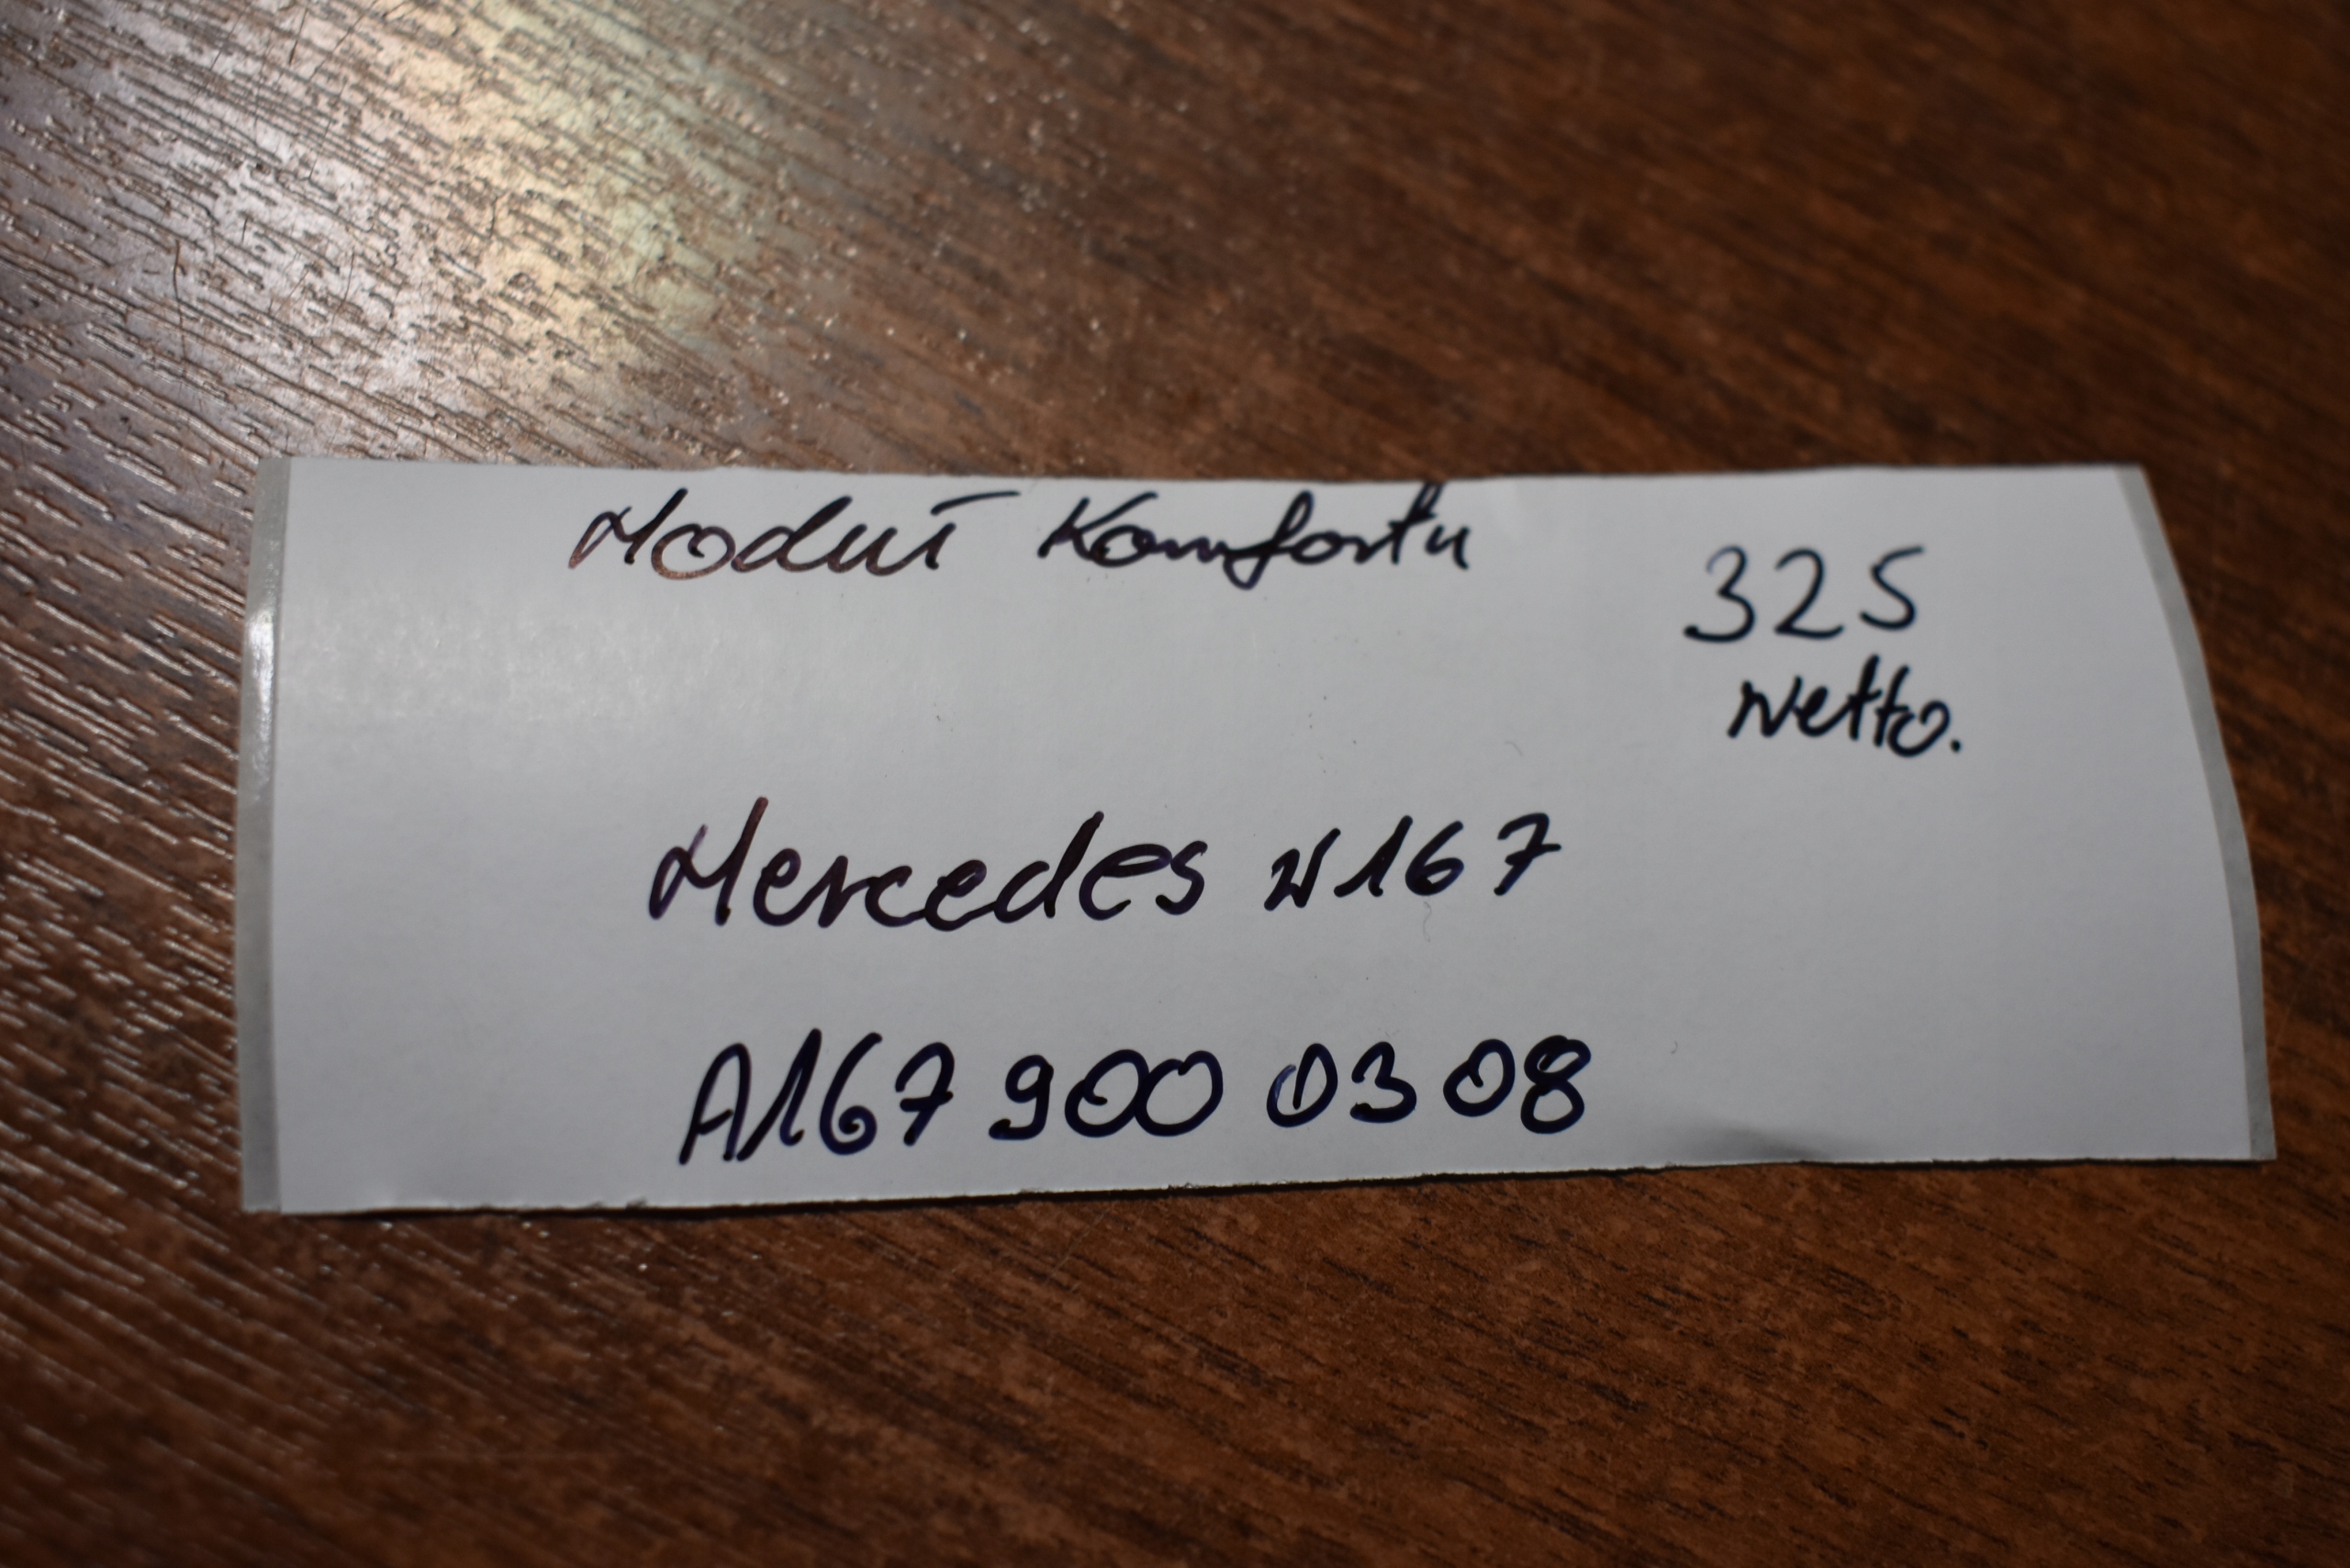 Moduł Komfortu
325
Netto.
Mercedes W167
A167 900 03 08